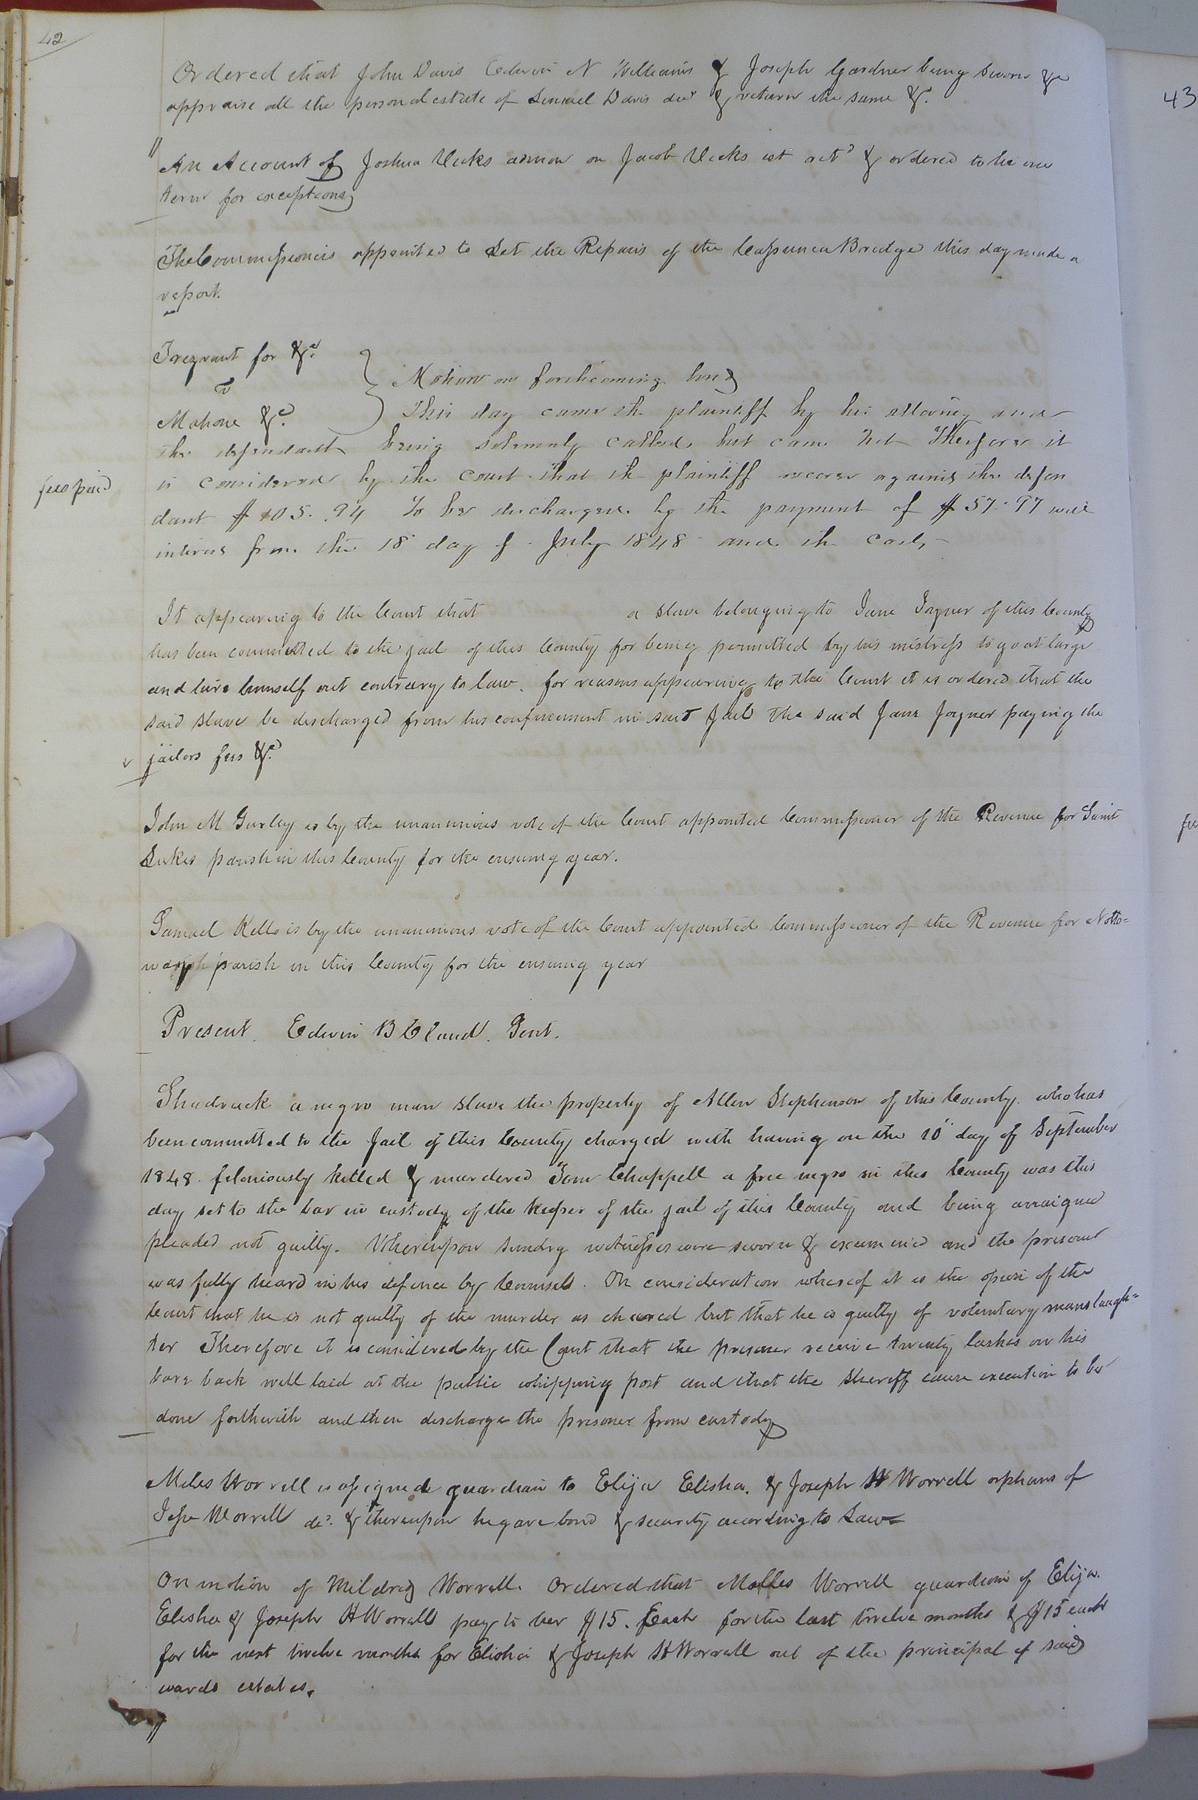 42
Ordered that John Davis Edwin N Williams & Joseph Gardner being sworn &c
appraise all the personal estate of Lemuel Davis decd & return the same &c.
An Account of Joshua Vicks admor on Jacob Vicks est retd & ordered to lie one
term for exceptions
The Commissioners appointed to Let the Repairs of the Bridge this day made a
report.
Tregnant for &c.
v
Mahone &c.
} Motion on forthcoming bond
This day came the plaintiff by his attorney and
the defendant being solemnly called, but came not Therefore it
fees paid
is considered by the court that the plaintiff recover against the defen
dant $105.94 To be discharged by the payment of $57.97 with
interest from the 18th day of July 1848 and the costs
It appearing to the Court that a slave belonging to Jane Joyner of this County
has been committed to the jail of this County for being permitted by his mistress to go at large
and hire himself out contrary to law. for reasons appearing to the Court it is ordered that the
said slave be discharged from his confinement in said Jail the said Jane Joyner paying the
jailors fees &c.
John M Gurley is by the unanimous vote of the Court appointed Commissioner of the Revenue for Saint
Lukes parish in this County for the ensuing year.
Samuel Kello is by the unanimous vote of the Court appointed Commissioner of the Revenue for Notto=
way parish in this County for the ensuing year
Present. Edwin B Claud. Gent.
Shadrack a negro man slave the property of Allen Stephenson of this County. who has
been committed to the Jail of this County charged with having on the 10th day of September
1848. feloniously killed & murdered Tom Chappell a free negro in this County was this
day set to the bar in custody of the keeper of the jail of this County and being arraigned
pleaded not guilty. Whereupon sundry witnesses were sworn & examined and the prisoner
was fully heard in his defence by Counsel. On consideration whereof it is the opin of the
Court that he is not guilty of the murder as charged but that he is guilty of voluntary manslaugh=
ter Therefore it is considered by the Court that the prisoner receive twenty lashes on his
bare back well laid at the public whipping post and that the Sheriff cause execution to be
done forthwith and then discharge the prisoner from custody
Miles Worrell is assigned guardian to Elija Elisha. & Joseph H Worrell orphans of
Jesse Worrell decd. & thereupon he gave bond & security according to Law
On motion of Mildred Worrell. Ordered that Miles Worrell guardian of Elija.
Elisha & Joseph H Worrell pay to her $15. Each for the last twelve months & $15 each
for the next twelve months for Elisha & Joseph H Worrell out of the principal of said
wards estates.
43